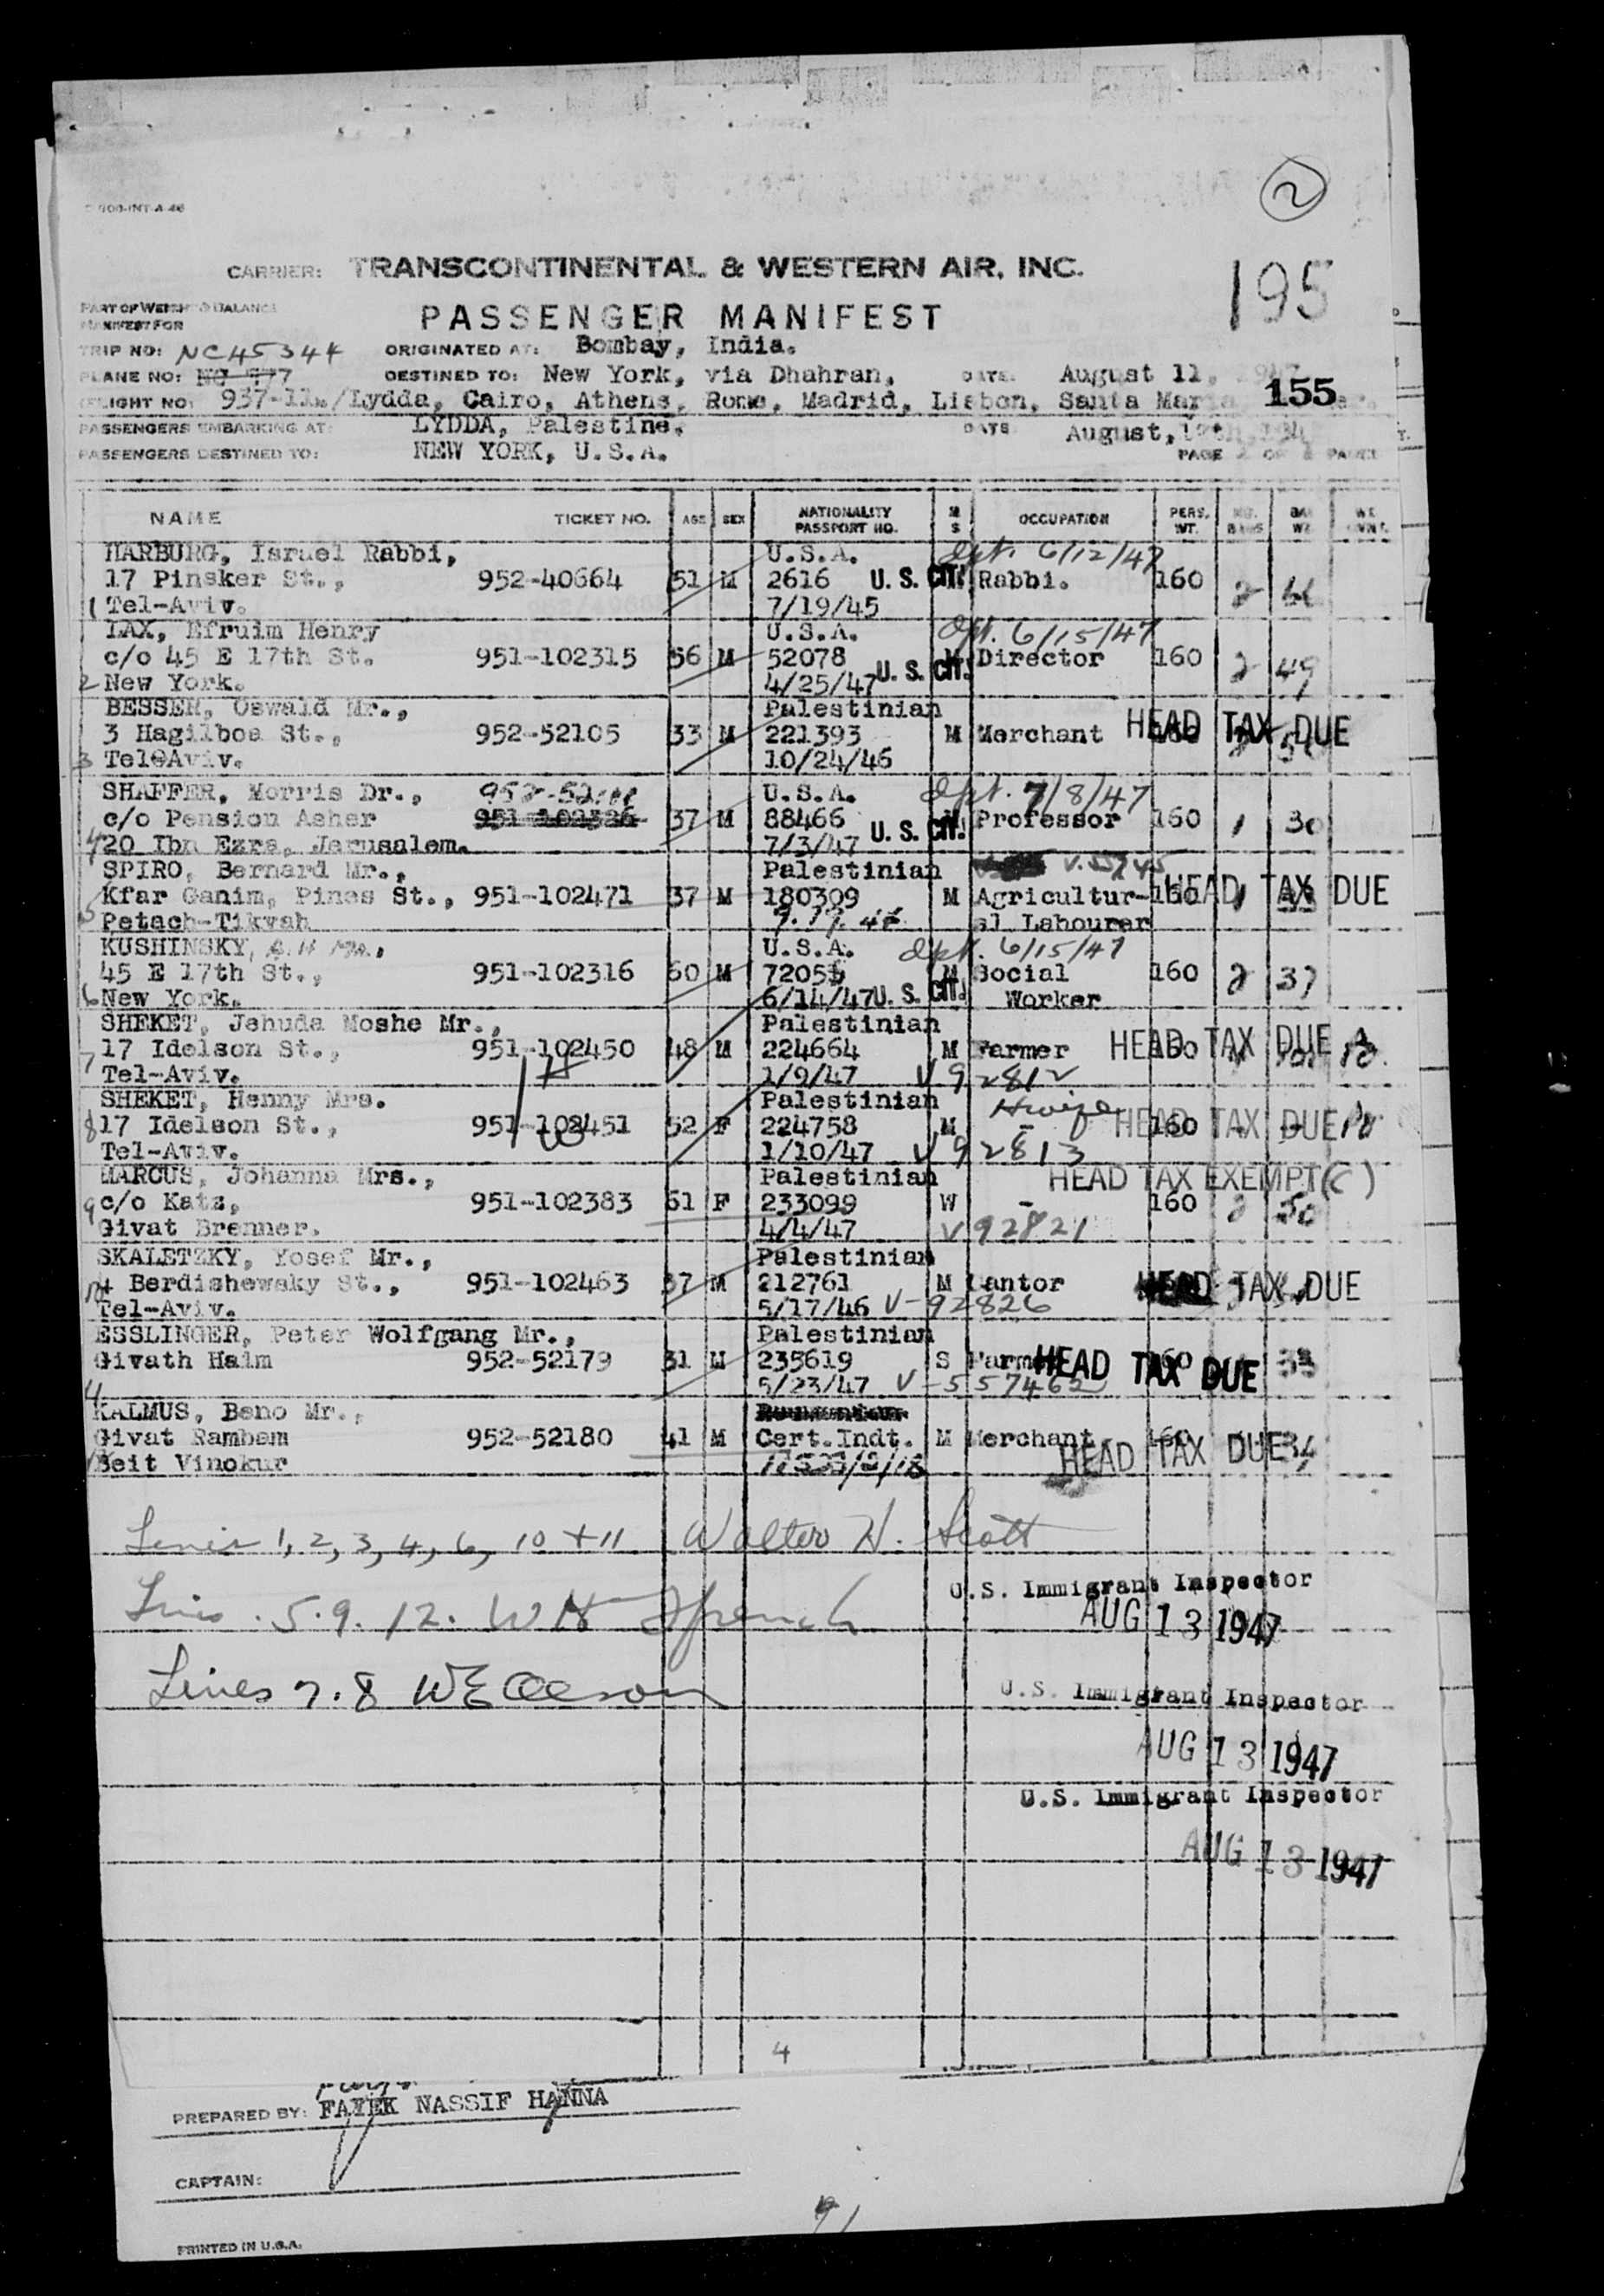 2
195
CARRIER: TRANSCONTINENTAL & WESTERN AIR, INC.
PASSENGER MANIFEST
MANIFEST FOR
TRIP NO: NC45344 ORIGINATED AT: Bombay, India.
PLANE NO: DESTINED TO: New York, via Dhahran, DATE August 11,
FLIGHT NO: Lydda, Cairo, Athens, Rome, Madrid, Lisbon, Santa Maria 155
PASSENGERS EMBARKING AT: LYDDA, Palestine. DATE August,
PASSENGERS DESTINED TO: NEW YORK, U.S.A. PAGE 2 OF
NAME TICKET NO. AGE SEX NATIONALITY PASSPORT NO. M S OCCUPATION PERS. WT. NO. BAGS BAG WT
HARBURG, Israel Rabbi, U.S.A. dpt. 6/12/47
17 Pinsker St., 952-40664 51 M 2616 U. S. CIT. Rabbi. 160 2
1 Tel-Aviv. 7/19/45
LAX, Efruim Henry U.S.A. dpt. 6/15/47
c/o 45 E 17th St. 951-102315 56 M 52078 U. S. CIT. Director 160 2 49
2 New York. 4/25/47
BESSER, Oswald Mr., Palestinian
3 Hagilboa St., 952-52105 33 M 221393 M Merchant HEAD TAX DUE
3 Tel@Aviv. 10/24/46
SHAFFER, Morris Dr., U.S.A. dpt. 7/8/47
c/o Pension Asher 951-102326 37 M 88466 U. S. CIT. Professor 160 1 30
4 20 Ibn Ezra, Jerusalem. 7/3/47
SPIRO, Bernard Mr., Palestinian
Kfar Ganim, Pines St., 951-102471 37 M 180309 M Agricultur- 160 HEAD TAX DUE
5 Petach-Tikvah al Labourer
KUSHINSKY, U.S.A. dpt. 6/15/47
45 E 17th St., 951-102316 60 M M Social 160 2 37
6 New York. 6/14/47 U. S. CIT. Worker
SHEKET, Jehuda Moshe Mr., Palestinian
7 17 Idelson St., 951-102450 48 M 224664 M Farmer HEAD TAX DUE
Tel-Aviv. 1/9/47 V92812
SHEKET, Henny Mrs. Palestinian Hwife
8 17 Idelson St., 951-102451 52 F 224758 M - 160 HEAD TAX DUE
Tel-Aviv. 1/10/47 V92813
MARCUS, Johanna Mrs., Palestinian HEAD TAX EXEMPT(C)
9 c/o Katz, 951-102383 61 F 233099 W - 160 2 50
Givat Brenner. 4/4/47 V92821
SKALETZKY, Yosef Mr., Palestinian
4 Berdishewsky St., 951-102463 37 M 212761 M Cantor HEAD TAX DUE
10 Tel-Aviv. 5/17/46 V-92826
ESSLINGER, Peter Wolfgang Mr., Palestinian
Givath Haim 952-52179 31 M 235619 S Farmer HEAD TAX DUE
5/23/47 V-557462
KALMUS, Beno Mr.,
Givat Rambam 952-52180 41 M Cert.Indt. M Merchant 160 HEAD TAX DUE 34
Beit Vinokur
Lines 1, 2, 3, 4, 6, 10 + 11 Walter H. Scott
U.S. Immigrant Inspector
Lines. 5.9.12. WH French
AUG 13 1947
Lines 7.8
U.S. Immigrant Inspector
AUG 13 1947
U.S. Immigrant Inspector
AUG 13 1947
4
PREPARED BY: FAYEK NASSIF HANNA
CAPTAIN:
PRINTED IN U.S.A.